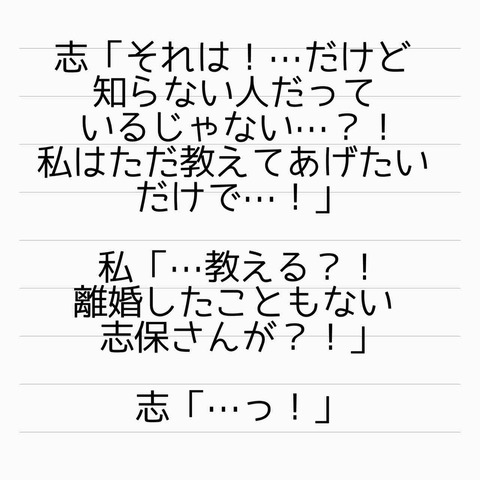 志「それは！…だけど
知らない人だって
いるじゃない…？！
私はただ教えてあげたい
だけで…！」
私「…教える？！
離婚したこともない
志保さんが？！」
志「…っ！」